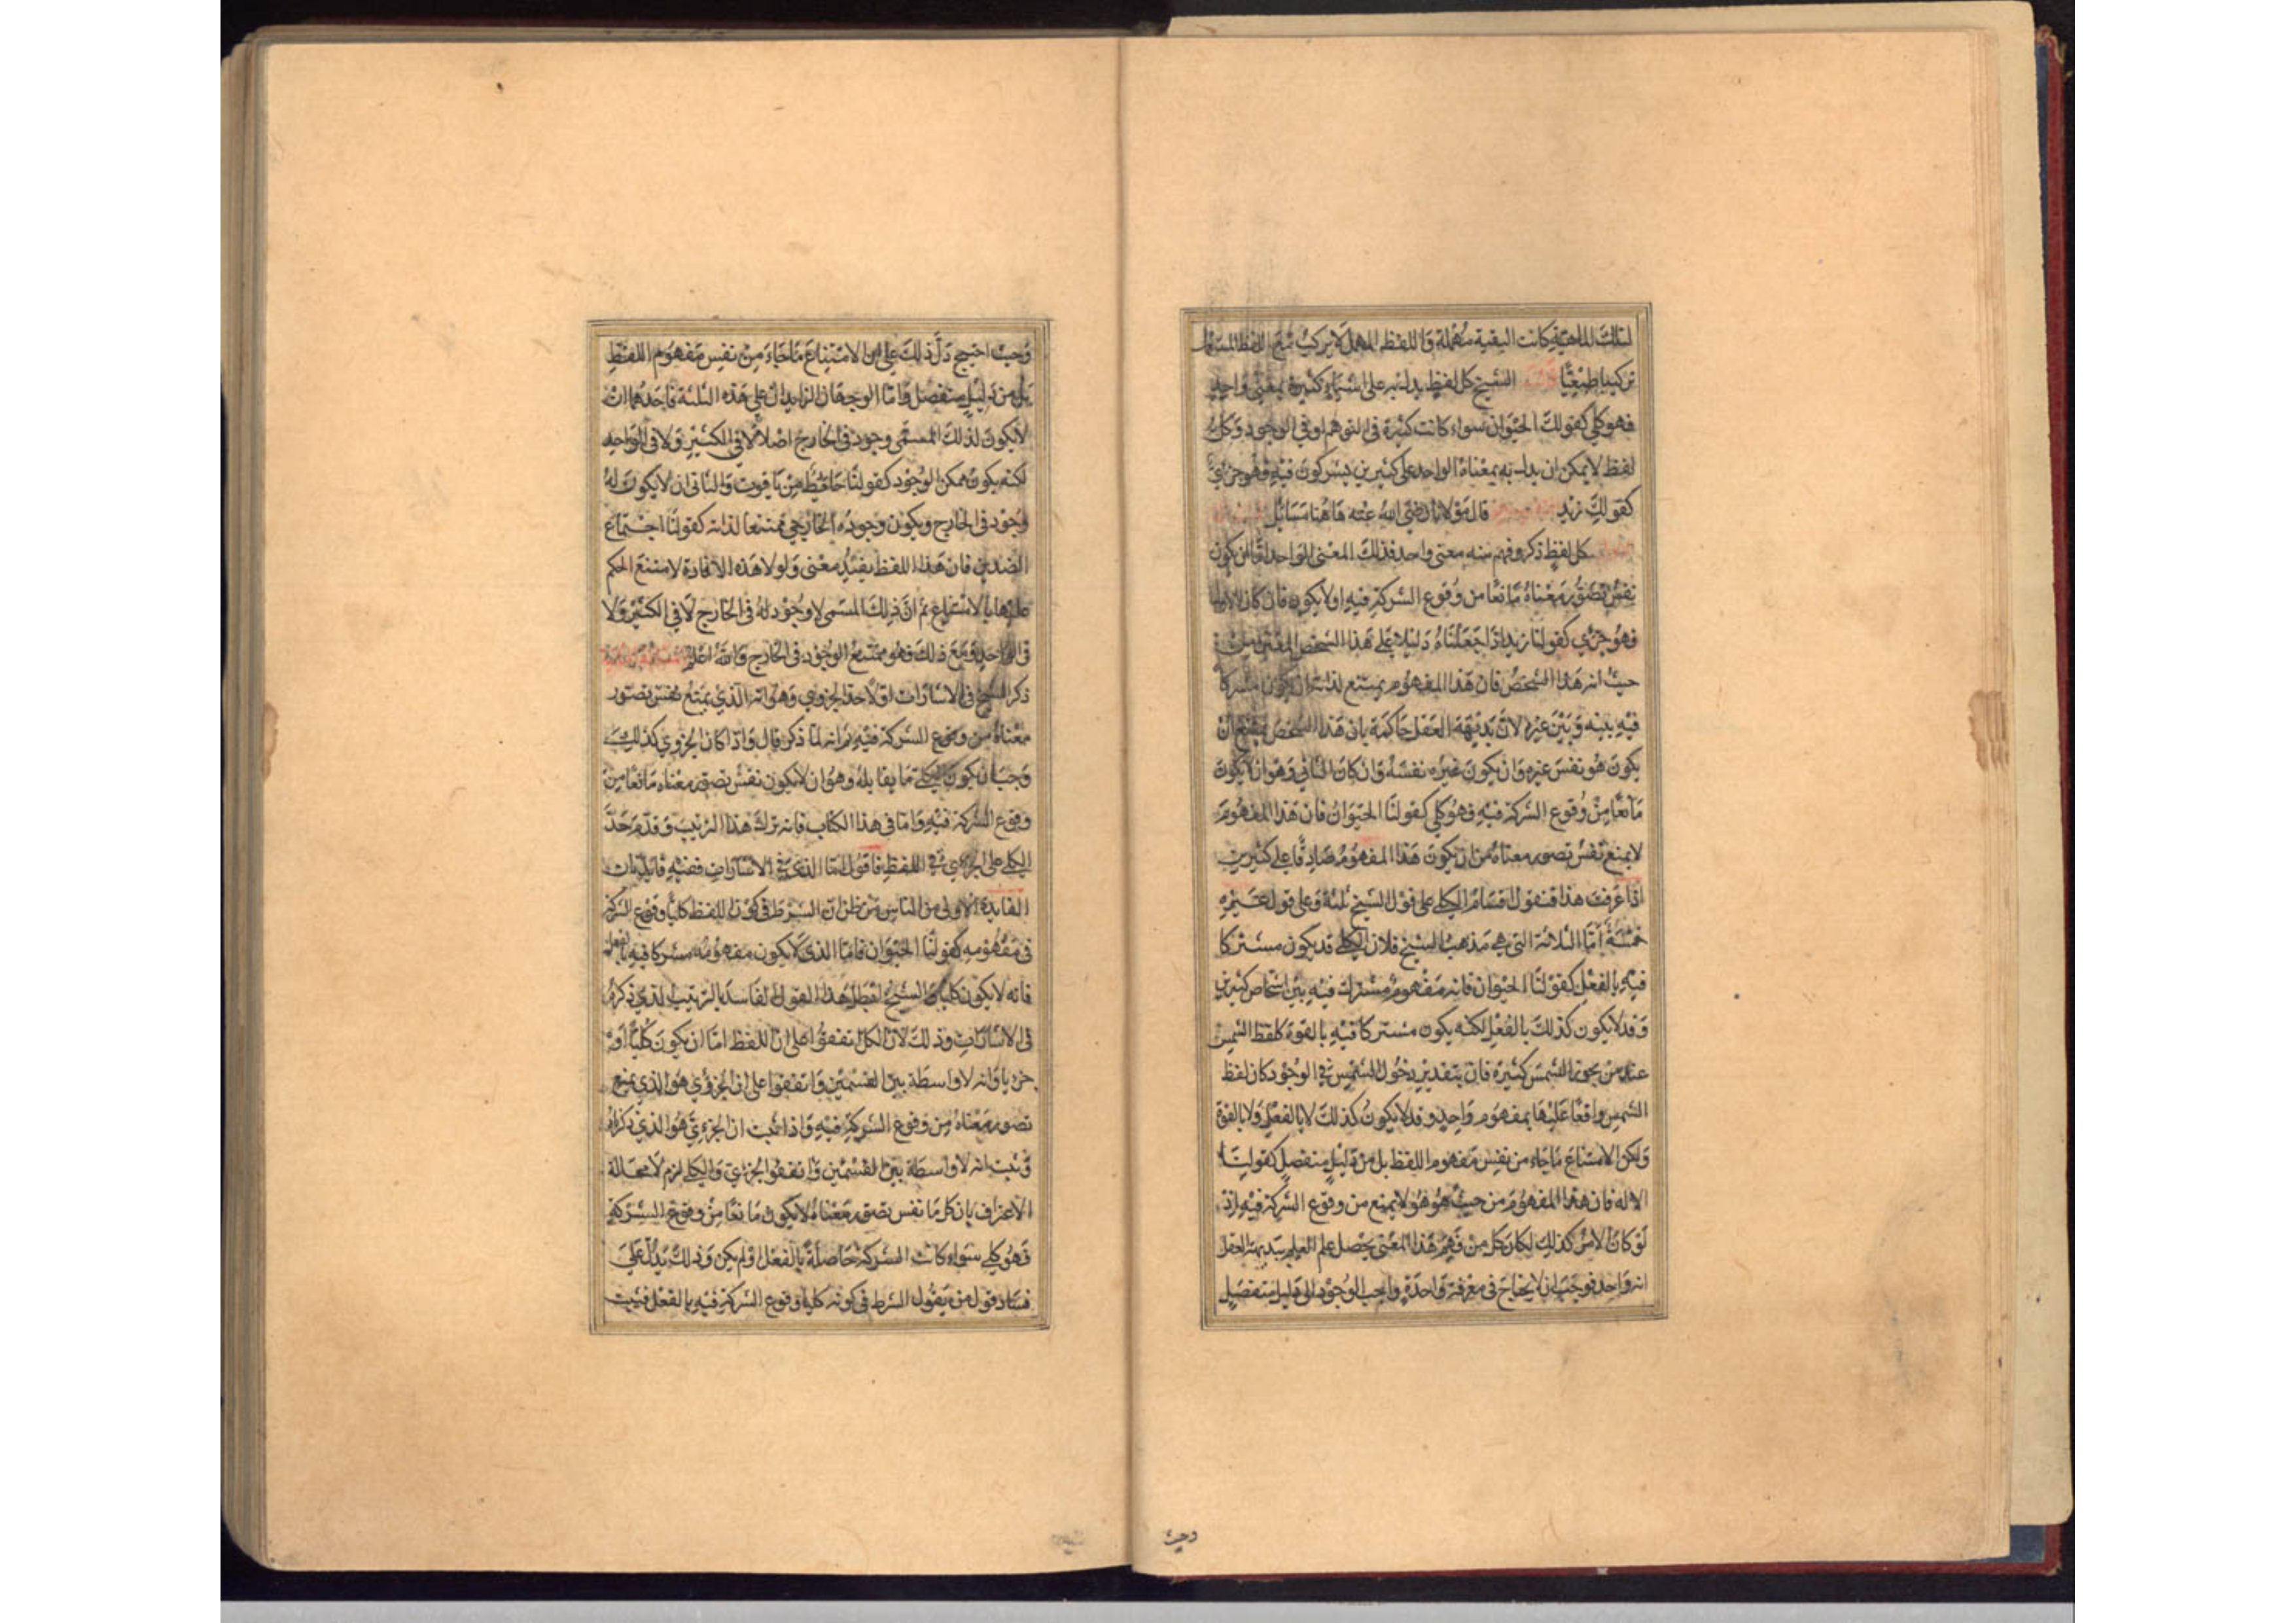 لتلك الماهية كانت البقية مهملة واللفظ المهمل لا يركب مع اللفظ المستعمل
تركيبا طبيعيا الشيخ كل لفظ يدل به على اشياء كثيرة بمعنى واحد
فهو كلي كقولك الحيوان سواء كانت كثيرة في التوهم او في الوجود وكل
لفظ لا يمكن ان يدل به بمعناه الواحد على كثيرين يشتركون فيه فهو جزئي
كقولك زيد قال مولانا رضي الله عنه هاهنا مسائل
كل لفظ ذكر وفهم منه معنى واحد فذلك المعنى الواحد اما ان يكون
نفس تصور معناه مانعا من وقوع الشركة فيه او لا يكون فان كان الاول
فهو جزئي كقولنا زيد اذا جعلناه دليلا على هذا الشخص المعين من
حيث انه هذا الشخص فان هذا المفهوم يمتنع لذاته ان يكون مشتركا
فيه بينه وبين غيره لان بديهة العقل حاكمة بان هذا الشخص يمتنع ان
يكون هو نفس غيره وان يكون غيره نفسه وان كان الثاني وهو ان لا يكون
مانعا من وقوع الشركة فيه فهو كلي كقولنا الحيوان فان هذا المفهوم
لا يمنع نفس تصور معناه من ان يكون هذا المفهوم صادقا على كثيرين
اذا عرفت هذا فنقول اقسام الكلي على قول الشيخ ثلثة وعلى قول غيره
خمسة اما الثلاثة التي هي مذهب الشيخ فلان الكلي قد يكون مشتركا
فيه بالفعل كقولنا الحيوان فانه مفهوم مشترك فيه بين اشخاص كثيرين
وقد لا يكون كذلك بالفعل لكنه يكون مشتركا فيه بالقوة كلفظ الشمس
عند من يجوز الشمس كثيرة فان بتقدير دخول الشمس في الوجود كان لفظ
الشمس واقعا عليها بمفهوم واحد وقد لا يكون كذلك لا بالفعل ولا بالقوة
ولكن الامتناع ما جاء من نفس مفهوم اللفظ بل من دليل منفصل كقولنا
الاله فان هذا المفهوم من حيث هو هو لا يمنع من وقوع الشركة فيه اذ
لو كان الامر كذلك لكان كل من فهم هذا المعنى يحصل علم العلم ببديهة العقل
انه واحد فوجب ان لا يحتاج في معرفة واحدة واجب الوجود الى دليل منفصل
وحيث
وحيث احتيج دل ذلك على ان الامتناع ما جاء من نفس مفهوم اللفظ
بل من دليل منفصل واما الوجهان الزايدان على هذه الثلثة فاحدهما ان
لا يكون لذلك المسمى وجود في الخارج اصلا لا في الكثير ولا في الواحد
لكنه يكون ممكن الوجود كقولنا حائط من ياقوت والثاني ان لا يكون له
وجود في الخارج ويكون وجوده الخارجي ممتنعا لذاته كقولنا اجتماع
الضدين فان هذا اللفظ يفيد معنى ولولا هذه الافادة لامتنع الحكم
عليها بالامتناع ثم ان ذلك المسمى لا وجود له في الخارج لا في الكثير ولا
في الواحد ومع ذلك فهو ممتنع الوجود في الخارج والله اعلم
ذكر الشيخ في الاشارات اولا حد الجزوي وهو انه الذي يمنع نفس تصور
معناه من وقوع الشركة فيه ثم انه لما ذكر قال واذا كان الجزوي كذلك
وجب ان يكون الكلي ما يقابله وهو ان لا يكون نفس تصور معناه مانعا من
وقوع الشركة فيه واما في هذا الكتاب فانه ترك هذا الترتيب وقدم حد
الكلي على الجزوي في اللفظ فاقول اما الذي في الاشارات ففيه فايدتان
الفايدة الاولى من الناس من ظن ان الشرط في كون اللفظ كليا وقوع الشركة
في مفهومه كقولنا الحيوان فاما الذي لا يكون مفهومه مشتركا فيه بالفعل
فانه لا يكون كليا والشيخ ابطل هذا القول الفاسد بالترتيب الذي ذكره
في الاشارات وذلك لان الكل اتفقوا على ان اللفظ اما ان يكون كليا او
جزويا وانه لا واسطة بين القسمين واتفقوا على ان الجزؤي هو الذي يمنع
تصور معناه من وقوع الشركة فيه واذا ثبت ان الجزءي هو الذي ذكرناه
وثبت انه لا واسطة بين القسمين واتفقوا الجزئي والكلي لزم لا محالة
الاعتراف بان كل ما نفس تصور معناه لا يكون مانعا من وقوع الشركة
فهو كلي سواء كانت الشركة حاصلة بالفعل او لم يكن وذلك يدل على
فساد قول من يقول الشرط في كونه كليا وقوع الشركة فيه بالفعل فثبت